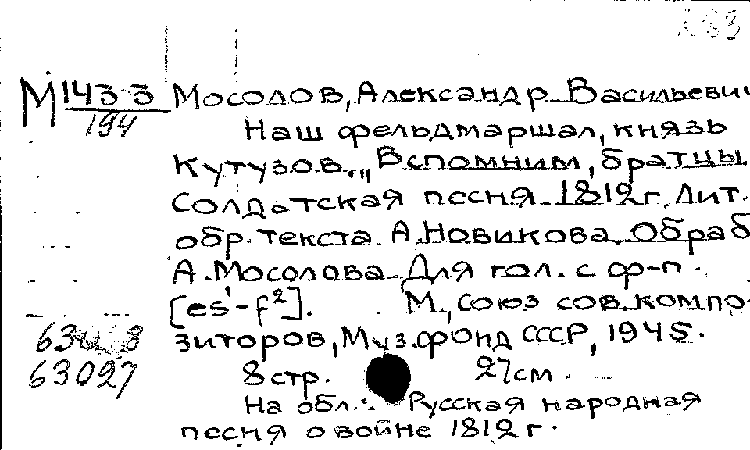 М 143 3 Мосолов, Александр Васильевич
194
Наш фельдмаршал, князь
Кутузов... „Вспомним, братцы
Солдатская песня 1812 г. Лит.
обр. текста А. Новикова. Обраб
А. Мосолова. Для гол. с ф-п.
[es¹-f²]. М., Союз сов. компо-
зиторов, Муз. фонд СССР, 1945.
63027 8 стр. 27 см.
На обл.: Русская народная
песня о войне 1812 г.